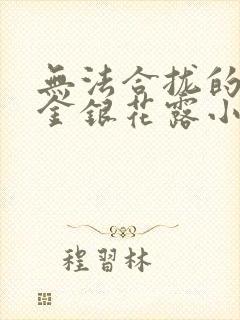 無法合拢的
金銀花露小
程習林